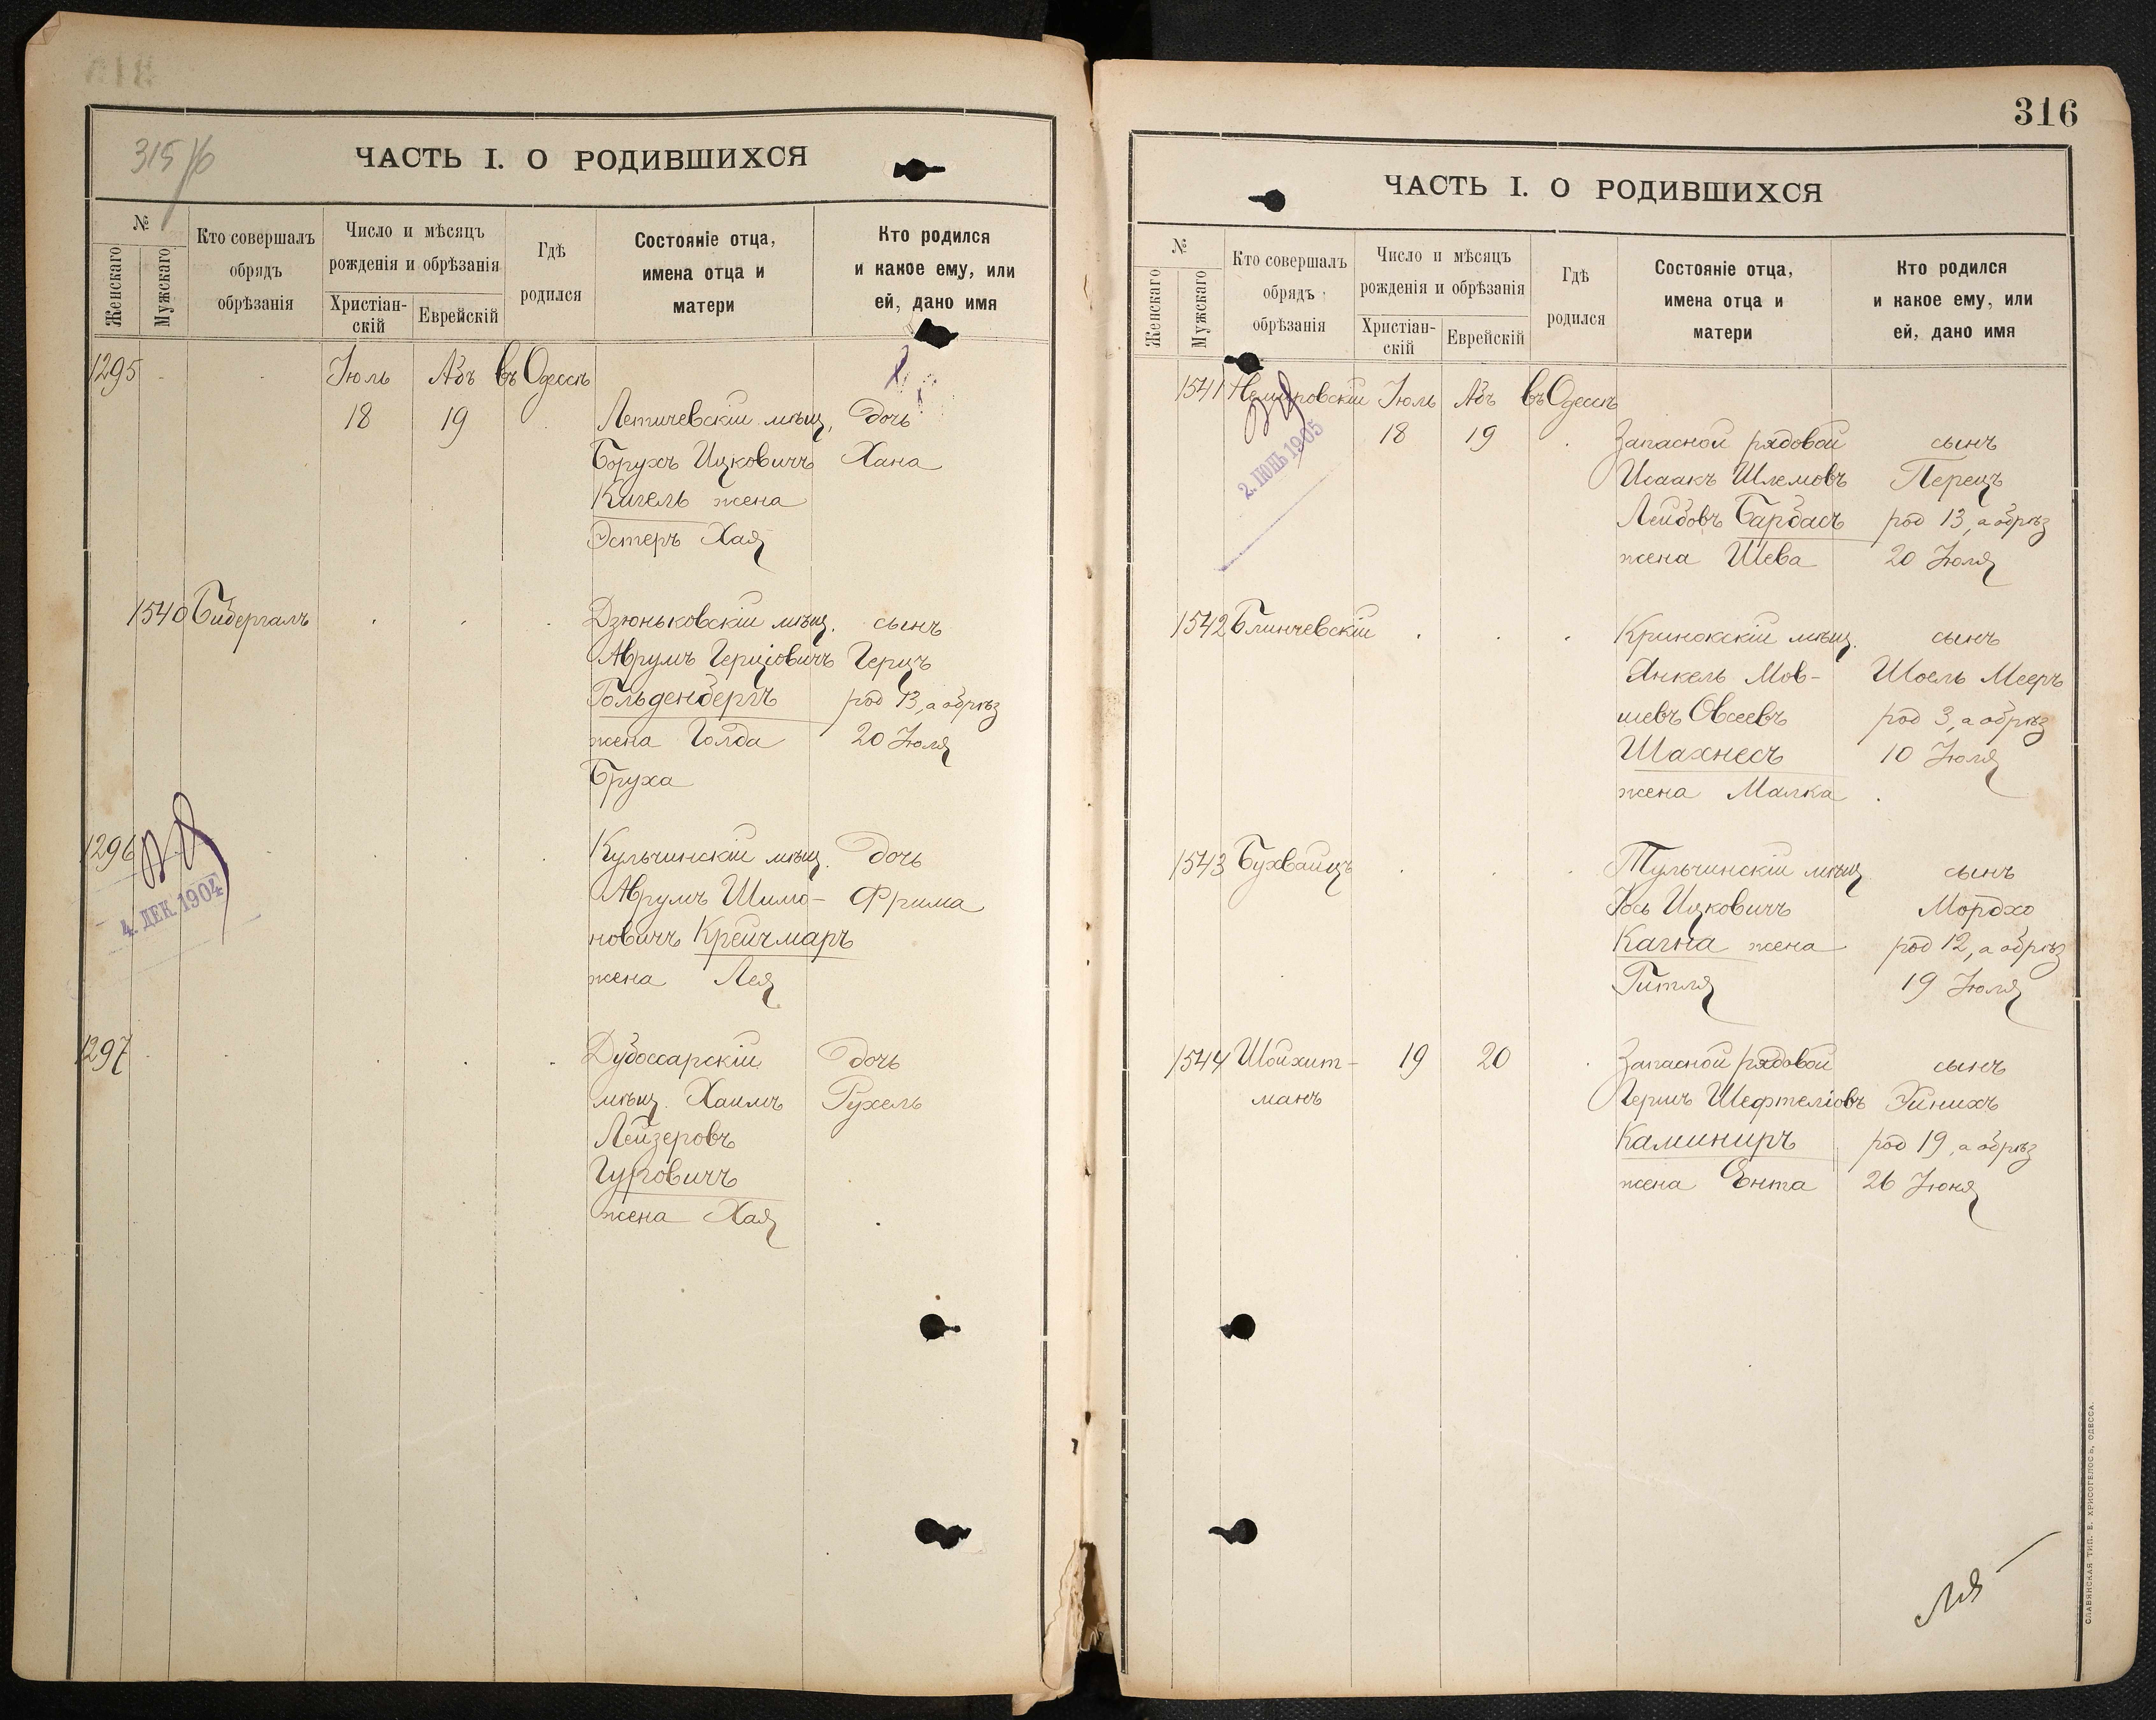 315 /б
ЧАСТЬ I. О РОДИВШИХСЯ
№
Женскаго
Мужскаго
Кто совершалъ
обрядъ
обрѣзанія
Число и мѣсяцъ
рожденія и обрѣзанія
Христіан-
скій
Еврейскій
Гдѣ
родился
Состояніе отца,
имена отца и
матери
Кто родился
и какое ему, или
ей, дано имя
1295 Іюль Абъ въ Одессѣ
18 19 Летичевскій мѣщ. дочь
Борухъ Ицковичъ Хана
Кигель жена
Эстеръ Хая
1540 Бибергалъ Дзюньковскій мѣщ. сынъ
Аврумъ Герціовичъ Герцъ
Гольденбергъ род 13, а обрѣз
жена Голда 20 Іюля
Бруха
1296 Кульчинскій мѣщ. дочь
Аврумъ Шимо- Фрима
4. ДЕК. 1904
новичъ Крейчмаръ
жена Лея
1297 Дубоссарскій дочь
мѣщ. Хаимъ Рухель
Лейзеровъ
Гуровичъ
жена Хая
316
ЧАСТЬ I. О РОДИВШИХСЯ
№
Женскаго
Мужскаго
Кто совершалъ
обрядъ
обрѣзанія
Число и мѣсяцъ
рожденія и обрѣзанія
Христіан-
скій
Еврейскій
Гдѣ
родился
Состояніе отца,
имена отца и
матери
Кто родился
и какое ему, или
ей, дано имя
1541 Немировскій Іюль Абъ въ Одессѣ
18 19 Запасной рядовой сынъ
2. ІЮНЬ 1905
Исаакъ Шлемовъ Перецъ
Лейбовъ Барбасъ род 13, а обрѣз
жена Шева 20 Іюля
1542 Блинчевскій Кринокскій мѣщ. сынъ
Янкель Мов- Шоель Мееръ
шевъ Овсеевъ род 3, а обрѣз
Шахнесъ 10 Іюля
жена Малка
1543 Бухвайцъ Тульчинскій мѣщ сынъ
Іось Ицковичъ Мордхо
Кагна жена род 12, а обрѣз
Гитля 19 Іюля
1544 Шойхит- 19 20 Запасной рядовой сынъ
манъ Гершъ Шефтеліовъ Эйнихъ
Каминиръ род 19, а обрѣз
жена Ента 26 Іюня
СЛАВЯНСКАЯ ТИП. Е. ХРИСОГЕЛОСЪ, ОДЕССА.